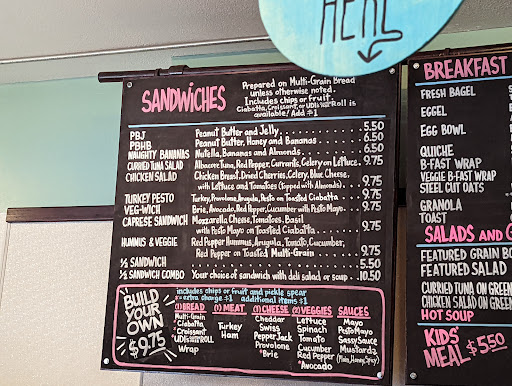 HERE
SANDWICHES
Prepared on Multi-Grain Bread
unless otherwise noted.
Includes chips or Fruit.
Ciabatta, Croissant, or UDIs Roll is
available! Add $1
PBJ Peanut Butter and Jelly 5.50
PBHB Peanut Butter, Honey and Bananas 6.50
NAUGHTY BANANAS Nutella, Bananas and Almonds 6.50
CURRIED TUNA SALAD Albacore Tuna, Red Pepper, Currants, Celery on Lettuce 9.75
CHICKEN SALAD Chicken Breast, Dried Cherries, Celery, Blue Cheese,
with Lettuce and Tomatoes (Topped with Almonds) 9.75
TURKEY PESTO Turkey, Provolone, Arugula, Pesto on Toasted Ciabatta 9.75
VEG-WICH Brie, Avocado, Red Pepper, Cucumber with Pesto Mayo
CAPRESE SANDWICH Mozzarella Cheese, Tomatoes, Basil
with Pesto Mayo on Toasted Ciabatta 9.75
HUMMUS & VEGGIE Red Pepper Hummus, Arugula, Tomato, Cucumber,
Red Pepper on Toasted Multi-Grain 9.75
½ SANDWICH 5.50
½ SANDWICH COMBO Your choice of sandwich with deli salad or soup 10.50
BUILD
YOUR
OWN
$9.75
includes chips or fruit and pickle spear
* = extra charge $1 additional items $1
(1) BREAD
Multi-Grain
*Ciabatta
*Croissant
*UDIs Roll
Wrap
(1) MEAT
Turkey
Ham
(1) CHEESE
Cheddar
Swiss
Pepper Jack
Provolone
*Brie
(2) VEGGIES
Lettuce
Spinach
Tomato
Cucumber
Red Pepper
*Avocado
SAUCES
Mayo
Pesto Mayo
Sassy Sauce
Mustards
BREAKFAST
FRESH BAGEL
EGGEL
EGG BOWL
QUICHE
B-FAST WRAP
VEGGIE B-FAST WRAP
STEEL CUT OATS
GRANOLA
TOAST
SALADS AND
FEATURED GRAIN BO
FEATURED SALAD
CURRIED TUNA ON GREEN
CHICKEN SALAD ON GREEN
HOT SOUP
KIDS'
MEAL $5.50